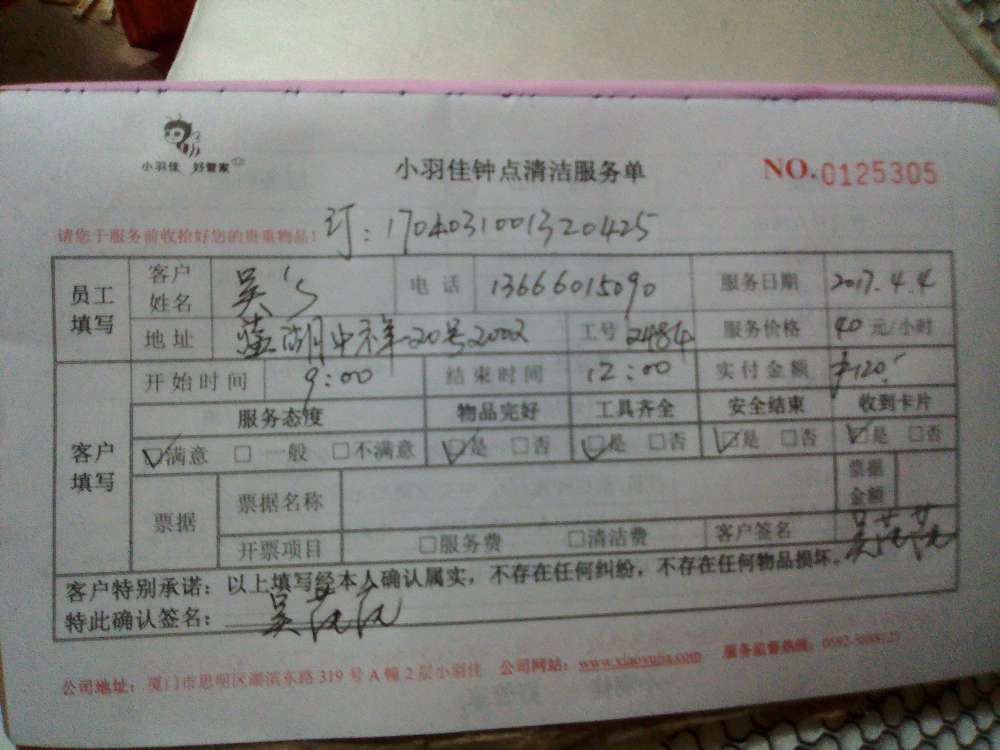 小羽佳 好管家
小羽佳钟点清洁服务单
NO.0125305
请您于服务前收拾好您的贵重物品!
订:170403100132 0425
员工填写 客户姓名 吴's 电话 13666015090 服务日期 2017.4.4
地址 20号2002 工号 2484 服务价格 40 元/小时
客户填写 开始时间 9:00 结束时间 12:00 实付金额 ¥120
服务态度 物品完好 工具齐全 安全结束 收到卡片
☑满意 □一般 □不满意 ☑是 □否 ☑是 □否 ☑是 □否 ☑是 □否
票据 票据名称 票据金额
开票项目 □服务费 □清洁费 客户签名 吴
客户特别承诺:以上填写经本人确认属实,不存在任何纠纷,不存在任何物品损坏。
特此确认签名:吴
公司地址:厦门市思明区湖滨东路319号A幢2层小羽佳 公司网站:www.xiaoyujia.com 服务监督热线: